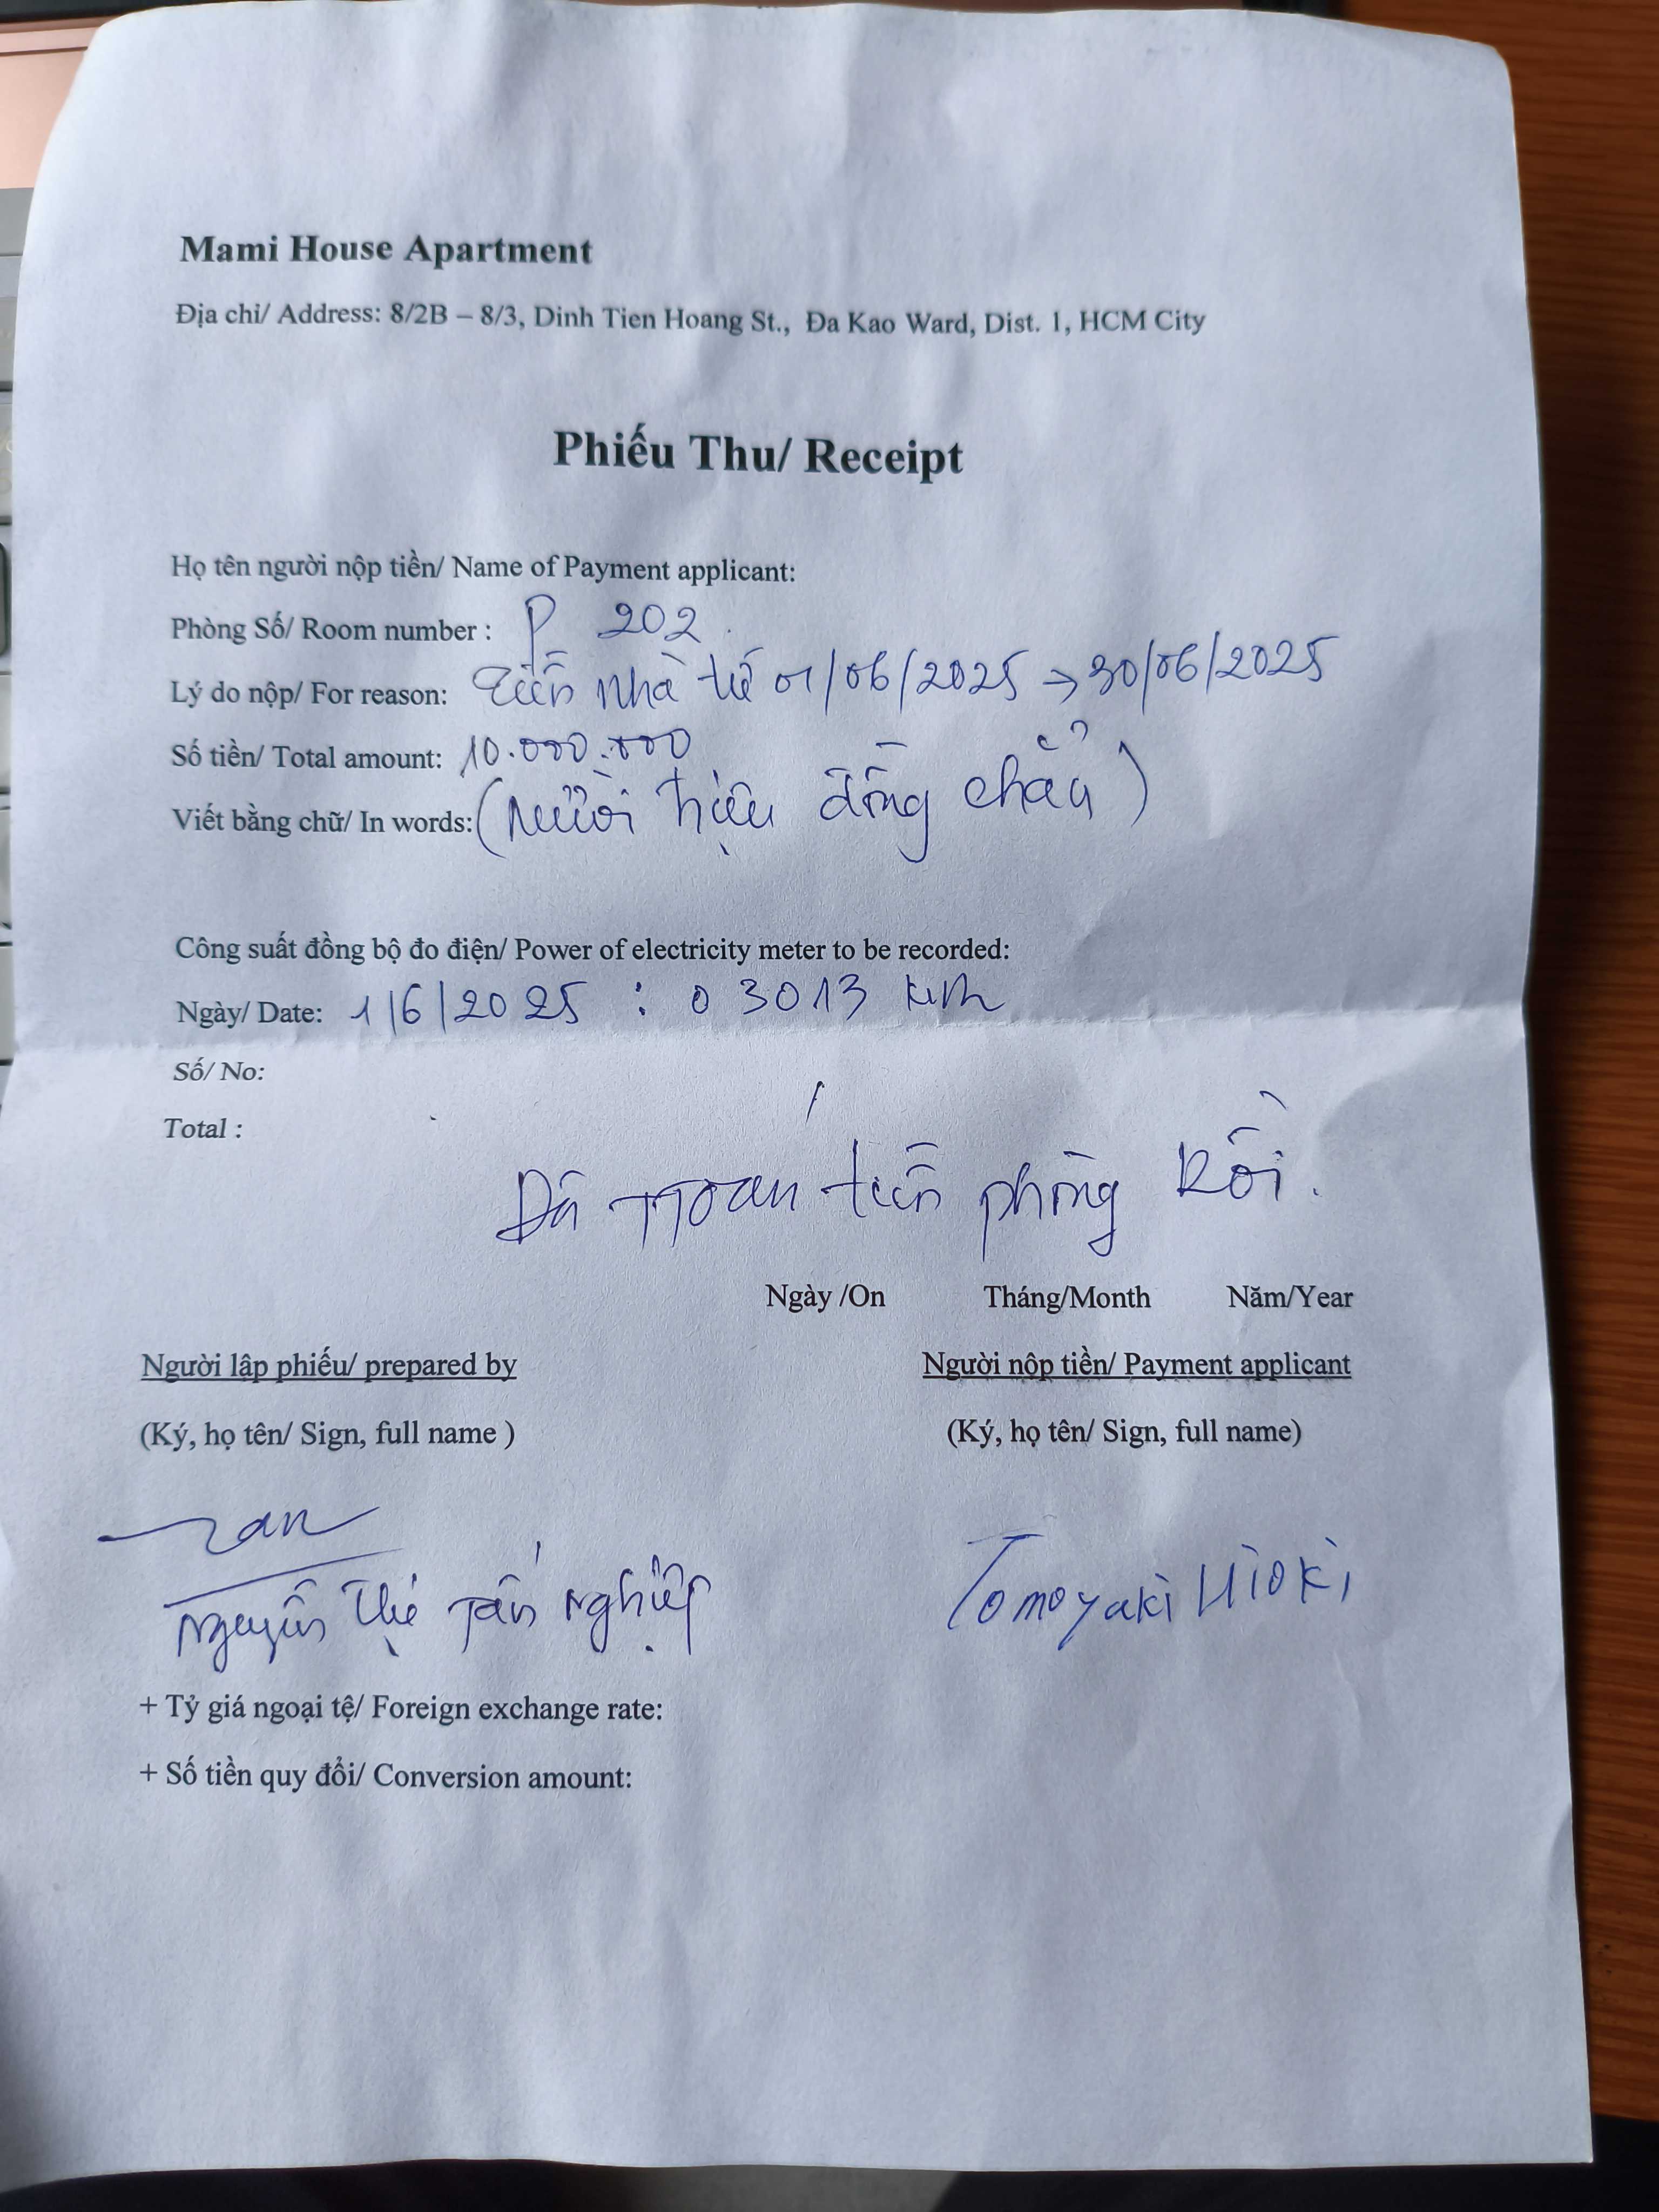 Mami House Apartment
Địa chỉ/ Address: 8/2B – 8/3, Dinh Tien Hoang St., Đa Kao Ward, Dist. 1, HCM City
Phiếu Thu/ Receipt
Họ tên người nộp tiền/ Name of Payment applicant:
Phòng Số/ Room number : P 202
Lý do nộp/ For reason: Tiền nhà từ 01/06/2025 → 30/06/2025
Số tiền/ Total amount: 10.000.000
Viết bằng chữ/ In words: (Mười triệu đồng chẵn)
Công suất đồng bộ đo điện/ Power of electricity meter to be recorded:
Ngày/ Date: 1/6/2025 : 03013 kwh
Số/ No:
Total :
Đã TToán tiền phòng Rồi.
Ngày /On Tháng/Month Năm/Year
Người lập phiếu/ prepared by Người nộp tiền/ Payment applicant
(Ký, họ tên/ Sign, full name ) (Ký, họ tên/ Sign, full name)
Nguyễn Thị Tấn Nghiệp Tomoyaki Hioki
+ Tỷ giá ngoại tệ/ Foreign exchange rate:
+ Số tiền quy đổi/ Conversion amount: